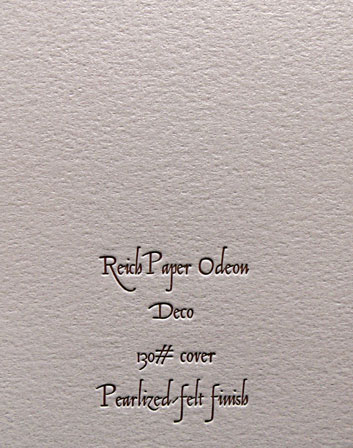 Reich Paper Odeon
Deco
130# cover
Pearlized felt finish